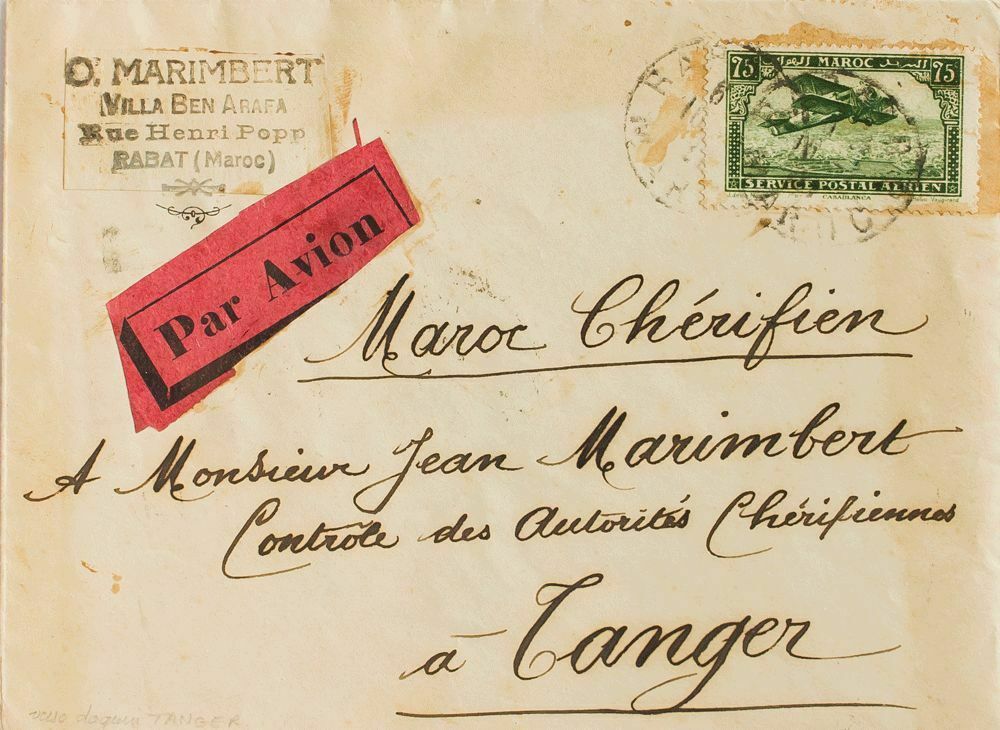 O. MARIMBERT
VILLA BEN ARAFA
Rue Henri Popp
RABAT (Maroc)
75 MAROC 75
SERVICE POSTAL AÉRIEN
CASABLANCA
Par Avion
Maroc Chérifien
A Monsieur Jean Marimbert
Contrôle des Autorités Chérifiennes
à Tanger
verso TANGER